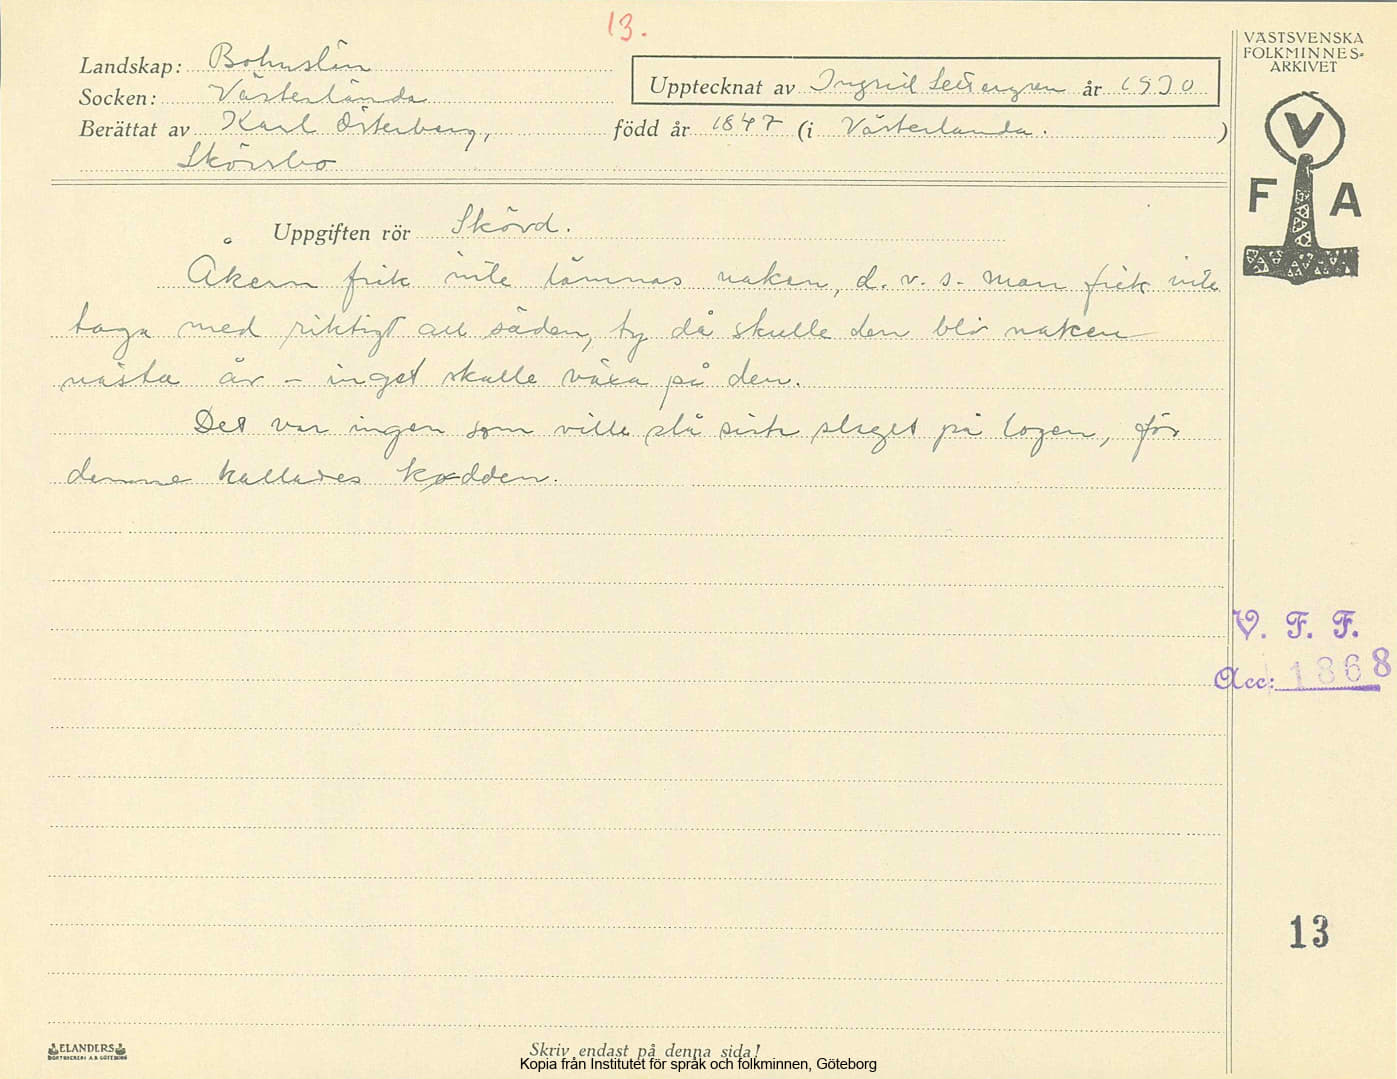 13.
Landskap: Bohuslän
Socken: Västerlanda
Upptecknat av Ingrid år 1930
Berättat av Karl Österberg, född år 1847 (i Västerlanda. )
VÄSTSVENSKA
FOLKMINNES-
ARKIVET
V
F A
Uppgiften rör Skörd.
Åkern fick inte lämnas naken, d. v. s. man fick inte
taga med riktigt all säden, ty då skulle den bli naken
nästa år - inget skulle växa på den.
Det var ingen som ville slå sista slaget på logen, för
denne kallades kodden.
V. F. F.
Acc: 1868
13
ELANDERS
BOKTRYCKERI A.B. GÖTEBORG
Skriv endast på denna sida!
Kopia från Institutet för språk och folkminnen, Göteborg